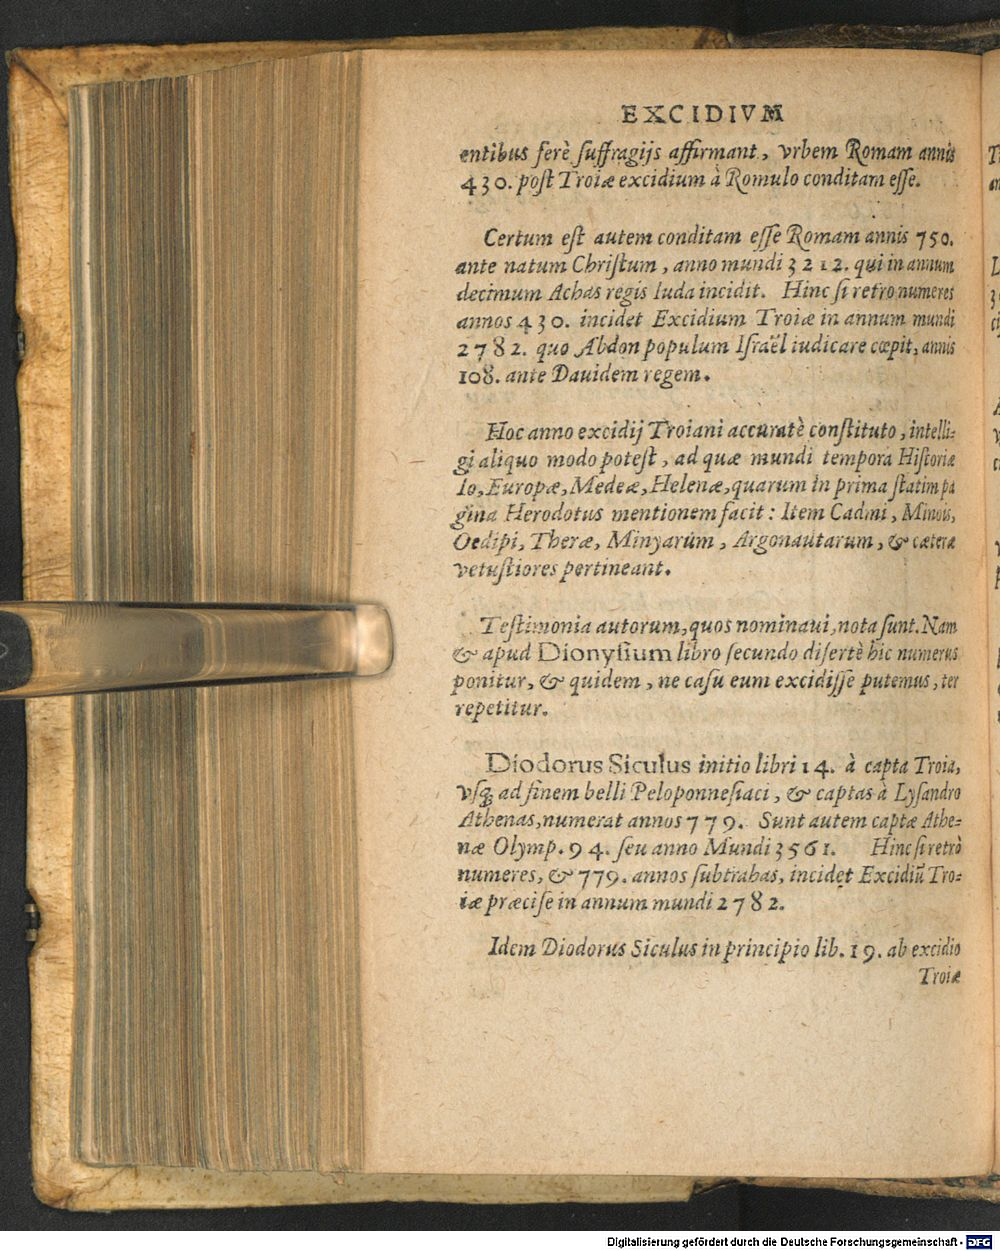 EXCIDIVM
entibus ferè ſuffragijs affirmant, vrbem Romam annis
430. poſt Troiæ excidium à Romulo conditam eſſe.
Certum eſt autem conditam eſſe Romam annis 750.
ante natum Chriſtum, anno mundi 3212. qui in annum
decimum Achas regis Iuda incidit. Hinc ſi retro numeres
annos 430. incidet Excidium Troiæ in annum mundi
2782. quo Abdon populum Iſraël iudicare cœpit, annis
108. ante Dauidem regem.
Hoc anno excidij Troiani accuratè conſtituto, intelli-
gi aliquo modo poteſt, ad quæ mundi tempora Hiſtoriæ
Io, Europæ, Medeæ, Helenæ, quarum in prima ſtatim pa
gina Herodotus mentionem facit: Item Cadmi, Minois,
Oedipi, Theræ, Minyarum, Argonautarum, & cæteræ
vetuſtiores pertineant.
Teſtimonia autorum, quos nominaui, nota ſunt. Nam
& apud Dionyſium libro ſecundo diſertè hic numerus
ponitur, & quidem, ne caſu eum excidiſſe putemus, ter
repetitur.
Diodorus Siculus initio libri 14. à capta Troia,
vſq; ad finem belli Peloponneſiaci, & captas à Lyſandro
Athenas, numerat annos 779. Sunt autem captæ Athe-
næ Olymp. 94. ſeu anno Mundi 3561. Hinc ſi retrò
numeres, & 779. annos ſubtrahas, incidet Excidiũ Tro-
iæ præciſe in annum mundi 2782.
Idem Diodorus Siculus in principio lib. 19. ab excidio
Troiæ
Digitalisierung gefördert durch die Deutsche Forschungsgemeinschaft - DFG